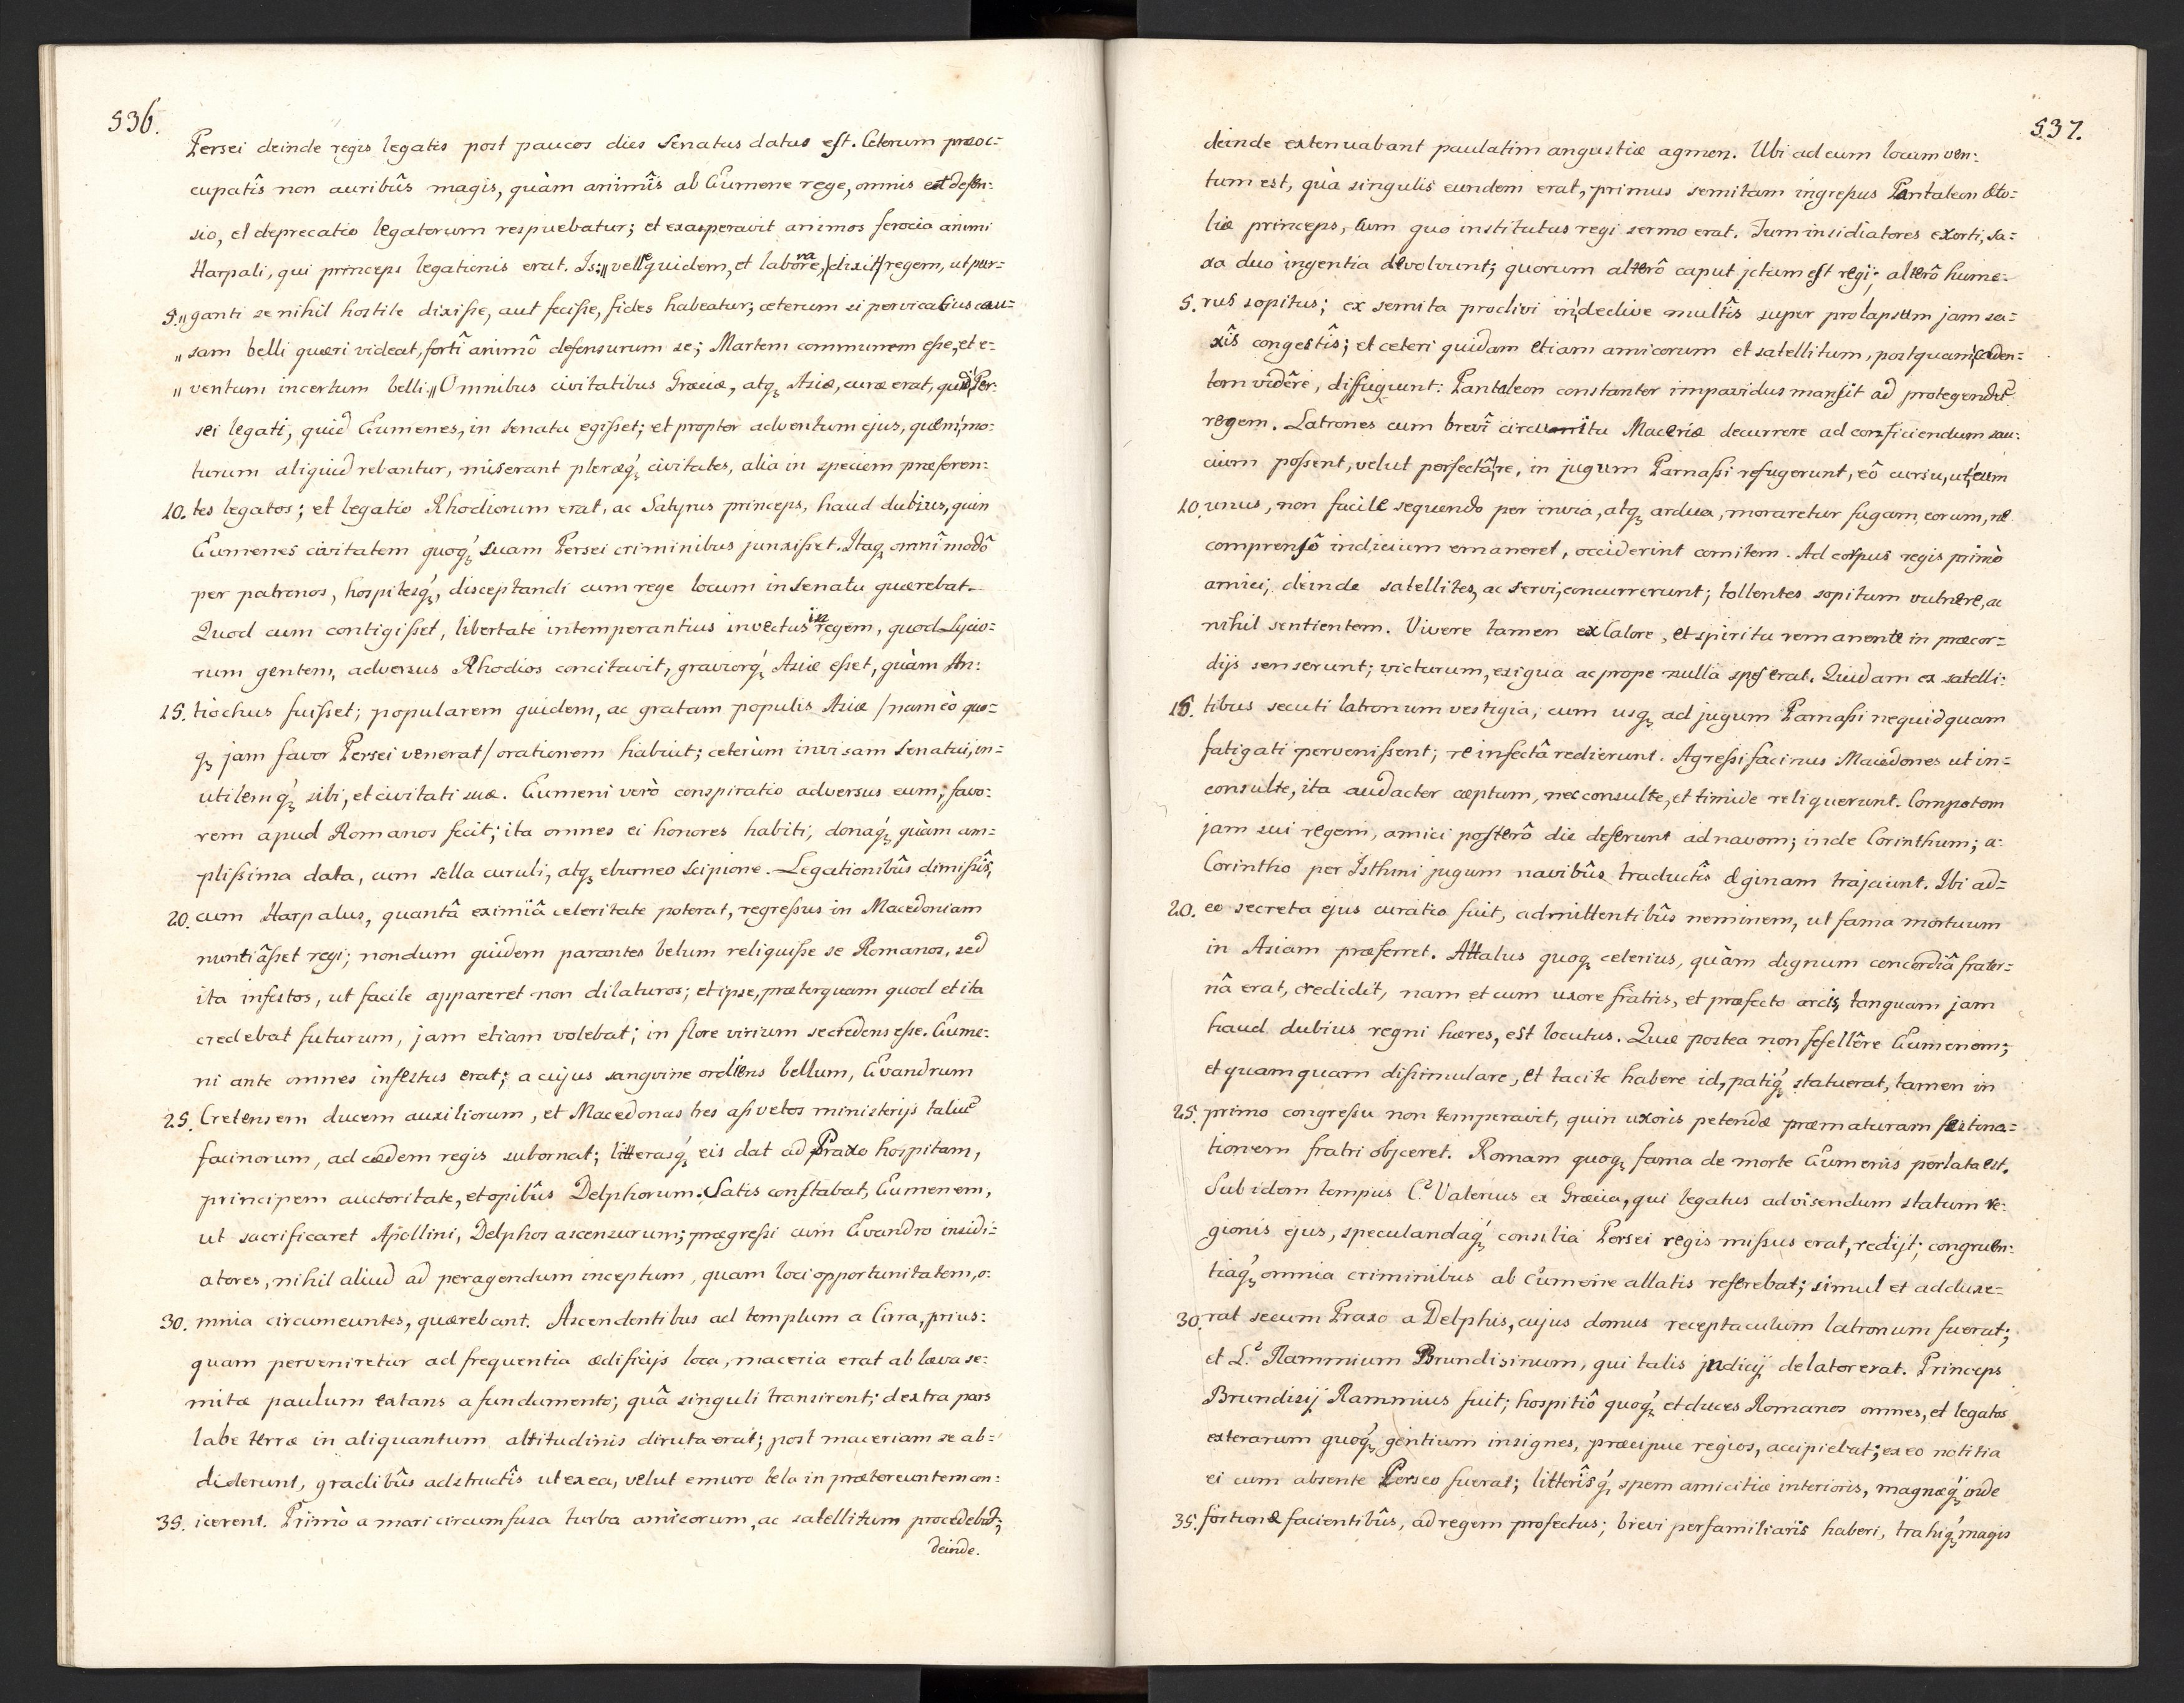 536.
Persei deinde regis legatis post paucos dies Senatus datus est. Ceterum præoc=
cupatîs non auribûs magis, quàm animîs ab Eumene rege, omnis et defen=
sio, et deprecatio legatorum respuebatur; et exasperavit animos ferocia animi
Harpali, qui princeps legationis erat. Is: „velle quidem, et laborare, /dixit/ regem, ut pur=
5. „ganti se nihil hostile dixisse, aut fecisse, fides habeatur; ceterum si pervicacius cau=
„sam belli quæri videat, fortî animô defensurum se; Martem communem esse, et e=
„ventum incertum belli.„ Omnibus civitatibus Græciæ, atqꝫ Asiæ, curæ erat, quid Per=
sei legati, quid Eumenes, in Senatu egisset; et propter adventum ejus, quem, mo=
turum aliquid rebantur, miserant pleræqꝫ́ civitates, alia in speciem præferen=
10. tes legatos; et legatio Rhodiorum erat, ac Satyrus princeps, haud dubius, quin
Eumenes civitatem quoqꝫ́ suam Persei criminibus junxisset. Itaqꝫ omnî modô
per patronos, hospitesqꝫ́, disceptandi cum rege locum in Senatu quærebat.
Quod cum contigisset, libertate intemperantius invectus in regem, quod Lycio=
rum gentem, adversus Rhodios concitavit, graviorqꝫ́ Asiæ esset, quàm An=
15. tiochus fuisset; popularem quidem, ac gratam populis Asiæ /nam eò quo=
qꝫ jam favor Persei venerat/ orationem habuit; ceterùm invisam Senatui, in=
utilemqꝫ́ sibi, et civitati suæ. Eumeni verò conspiratio adversus eum, favo=
rem apud Romanos fecit; ita omnes ei honores habiti, donaqꝫ́ quàm am=
plissima data, cum sella curuli, atqꝫ eburneo Scipione. Legationibûs dimissîs,
20. cum Harpalus, quantâ eximiâ celeritate poterat, regressus in Macedoniam
nuntiâsset regi; nondum quidem parantes belum reliquisse se Romanos, sed
ita infestos, ut facile appareret non dilaturos; et ipse, præterquam quod et ita
credebat futurum, jam etiam volebat; in flore virium se credens esse. Eume=
ni ante omnes infestus erat; a cujus sanguine ordiens bellum, Evandrum
25. Cretensem ducem auxiliorum, et Macedonas tres assvetos ministerijs taliu᷈
facinorum, ad cædem regis subornat; litterasqꝫ́ eis dat ad Praxo hospitam,
principem auctoritate, et opibûs Delphorum. Satis constabat, Eumenem,
ut sacrificaret Apollini, Delphos ascensurum; prægressi cum Evandro insidi=
atores, nihil aliud ad peragendum inceptum, quam loci opportunitatem, o=
30. mnia circumeuntes, quærebant. Ascendentibus ad templum a Cirra, prius=
quam perveniretur ad frequentia ædificijs loca, maceria erat ab læva se=
mitæ paulum extans a fundamento; quâ singuli transirent; dextra pars
labe terræ in aliquantum altitudinis diruta erat; post maceriam se ab=
diderunt, gradibûs adstructîs ut ex ea, velut e muro tela in prætereuntem con=
35. icerent. Primò a mari circumfusa turba amicorum, ac satellitum procedebat;
deinde.
537.
deinde extenuabant paulatim angustiæ agmen. Ubi ad eum locum ven=
tum est, quà singulis eundem erat, primus semitam ingressus Pantaleon Æto=
liæ princeps, cum quo institutus regi sermo erat. Tum insidiatores exorti, sa=
xa duo ingentia devolvunt; quorum alterô caput jctum est regi; alterô hume=
5. rus sopitus; ex semita proclivi in declive multîs super prolapsum jam sa=
xîs congestîs; et ceteri quidam etiam amicorum et satellitum, postquam caden=
tem vidêre, diffugiunt: Pantaleon constanter impavidus mansit ad protegendu᷈
regem. Latrones cum brevî circumitu Maceriæ decurrere ad conficiendum sau=
cium possent, velut perfectâ re, in jugum Parnassi refugerunt, eô cursu, ut, cum
10. unus, non facile sequendo per invia, atqꝫ ardua, moraretur fugam eorum, ne
comprensô indicium emaneret, occiderint comitem. Ad corpus regis primò
amici, deinde satellites, ac servi, concurrerunt; tollentes sopitum vulnere, ac
nihil sentientem. Vivere tamen ex calore, et spiritu remanente in præcor=
dijs senserunt; victurum, exigua ac prope nulla spes erat. Quidam ex satelli=
15. tibus secuti latronum vestigia, cum usqꝫ ad jugum Parnassi nequidquam
fatigati pervenissent; re infectâ redierunt. Agressi facinus Macedones ut in=
consulte, ita audacter cœptum, nec consulte, et timide reliquerunt. Compotem
jam sui regem, amici posterô die deferunt ad navem; inde Corinthum; a=
Corintho per Isthmi jugum navibûs traductîs Æginam trajciunt. Ibi ad=
20. eo secreta ejus curatio fuit, admittentibûs neminem, ut fama mortuum
in Asiam præferret. Attalus quoqꝫ celerius, quàm dignum concordiâ frater=
nâ erat, credidit, nam et cum uxore fratris, et præfecto arcis, tanquam jam
haud dubius regni hæres, est locutus. Quæ postea non fefellêre Eumenem;
et quamquam dissimulare, et tacite habere id, patiqꝫ́ statuerat, tamen in
25. primo congressu non temperavit, quin uxoris petendæ præmaturam festina=
tionem fratri objceret. Romam quoqꝫ fama de morte Eumenis perlata est.
Sub idem tempus C.² Valerius ex Græcia, qui legatus ad visendum statum re=
gionis ejus, speculandaqꝫ́ consilia Persei regis missus erat, redijt; congruen=
tiaqꝫ́ omnia criminibus ab Eumene allatis referebat; simul et adduxe=
30. rat secum Praxo a Delphis, cujus domus receptaculum latronum fuerat;
et L.² Rammium Brundisinum, qui talis jndicij delator erat. Princeps
Brundisij Rammius fuit; hospitiô quoqꝫ́ et duces Romanos omnes, et legatos
exterarum quoqꝫ́ gentium insignes, præcipue regios, accipiebat; ex eo notitia
ei cum absente Perseo fuerat; litterîsqꝫ́ spem amicitiæ interioris, magnæqꝫ́ inde
35. fortunæ facientibûs, ad regem profectus; brevi perfamiliaris haberi, trahiqꝫ́ magis